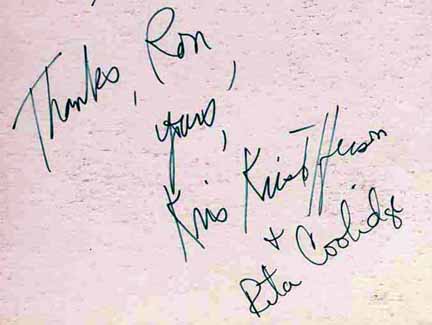 Thanks, Ron
yours,
Kris Kristofferson
+
Rita Coolidge